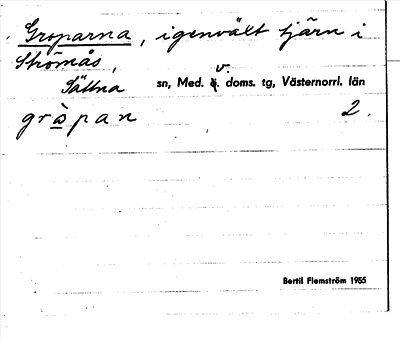 Groparna, igenvält tjärn i
Strömås,
Sättna sn, Med. v. doms. tg, Västernorrl. län
gròpan 2.
Bertil Flemström 1955